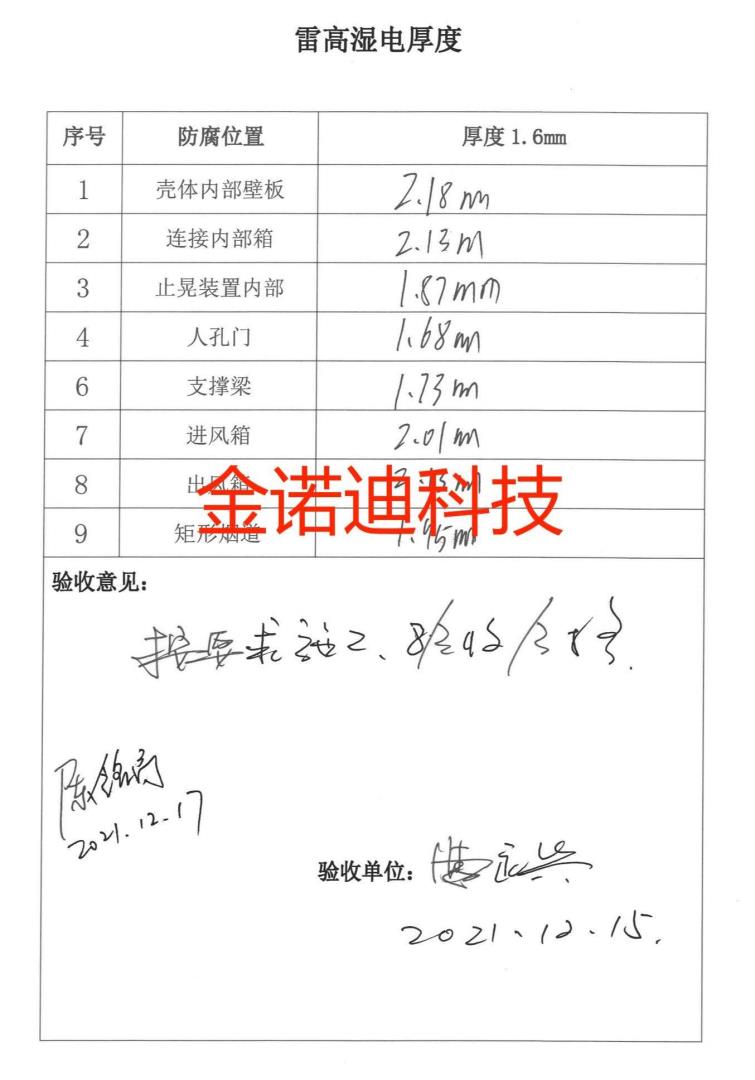 雷高湿电厚度
序号 防腐位置 厚度1.6mm
1 壳体内部壁板 2.18mm
2 连接内部箱 2.13m
3 止晃装置内部 1.87mm
4 人孔门 1.68mm
6 支撑梁 1.73m
7 进风箱 2.01m
8 出风箱
金诺迪科技
9 矩形烟道 1.95m
验收意见：
按要求施工、验收合格.
2021.12.17
验收单位：
2021.12.15.